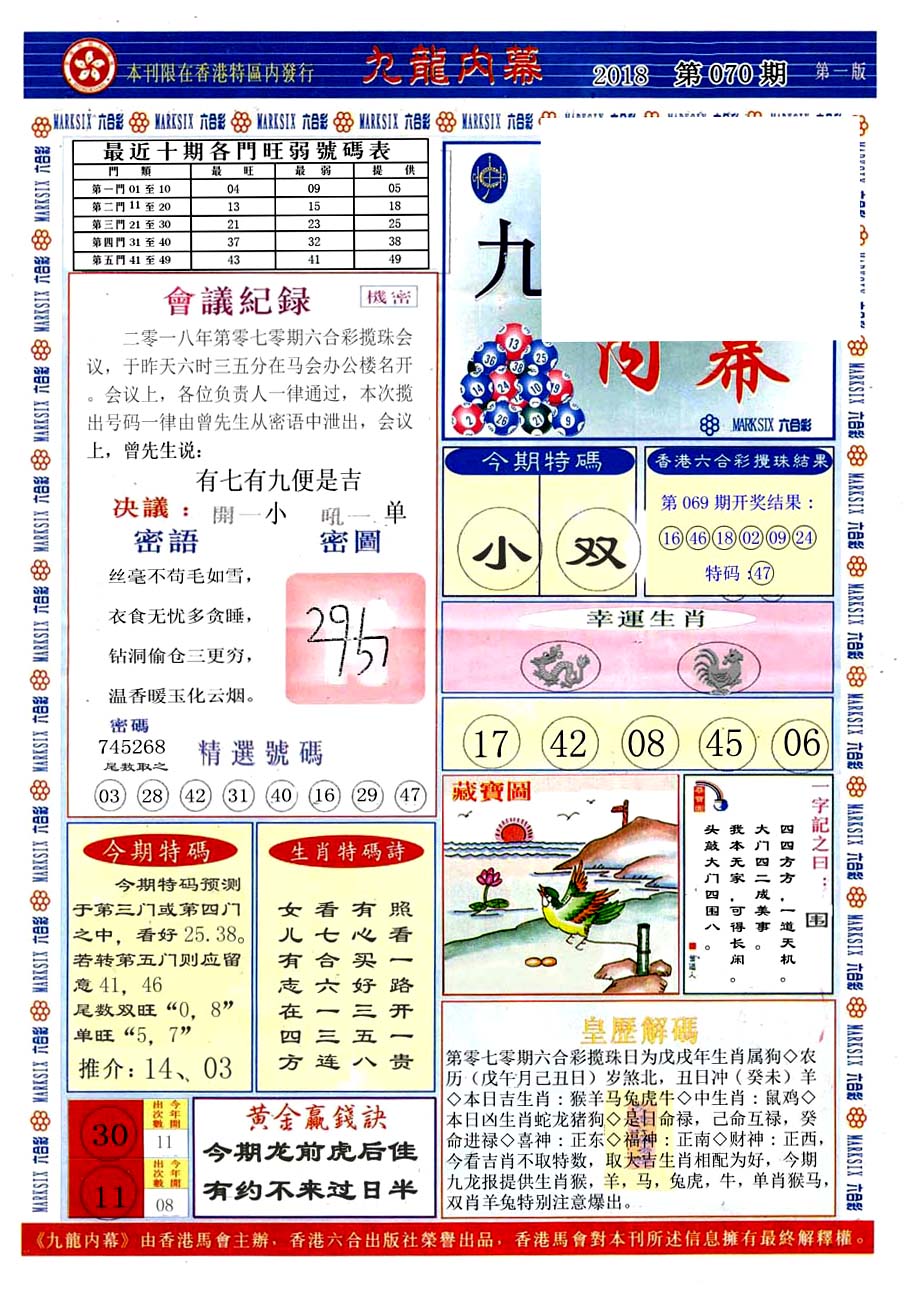 本刊限在香港特區内發行
九龍内幕
2018 第070期
第一版
MARKSIX 六合彩
最近十期各門旺弱號碼表
門類 最旺 最弱 提供
第一門 01 至 10 04 09 05
第二門 11 至 20 13 15 18
第三門 21 至 30 21 23 25
第四門 31 至 40 37 32 38
第五門 41 至 49 43 41 49
會議紀録
機密
二零一八年第零七零期六合彩揽珠会
议，于昨天六时三五分在马会办公楼名开
。会议上，各位负责人一律通过，本次揽
出号码一律由曾先生从密语中泄出，会议
上，曾先生说：
有七有九便是吉
决議： 開一小 吼一单
密語
密圖
丝毫不苟毛如雪，
衣食无忧多贪睡，
钻洞偷仓三更穷，
温香暖玉化云烟。
密碼
745268
尾数取之
精選號碼
03 28 42 31 40 16 29 47
九
内幕
13
36 25
38
14 24 10 19
2 26 21 9
MARKSIX 六合彩
今期特碼
小 双
香港六合彩攪珠結果
第069期开奖结果：
16 46 18 02 09 24
特码：47
幸運生肖
17 42 08 45 06
今期特碼
今期特码预测
于第三门或第四门
之中，看好25.38。
若转第五门则应留
意41，46
尾数双旺“0，8”
单旺“5，7”
推介：14、03
生肖特碼詩
女看有照
儿七心看
有合买一
志六好路
在一三开
四三五一
方连八贵
藏寶圖
一字記之曰：围
四四方方，一道天机。
大门四二成美事。
我本无家，可得长闲。
头敲大门四围八。
皇歷解碼
第零七零期六合彩揽珠日为戊戌年生肖属狗◇农
历（戊午月己丑日）岁煞北，丑日冲（癸未）羊
◇本日吉生肖：猴羊马兔虎牛◇中生肖：鼠鸡◇
本日凶生肖蛇龙猪狗◇是日命禄，己命互禄，癸
命进禄◇喜神：正东◇福神：正南◇财神：正西，
今看吉肖不取特数，取大吉生肖相配为好，今期
九龙报提供生肖猴，羊，马，兔虎，牛，单肖猴马，
双肖羊兔特别注意爆出。
30
今年開出次數
11
11
今年開出次數
08
黄金赢錢訣
今期龙前虎后佳
有约不来过日半
《九龍内幕》由香港馬會主辦，香港六合出版社榮譽出品，香港馬會對本刊所述信息擁有最終解釋權。